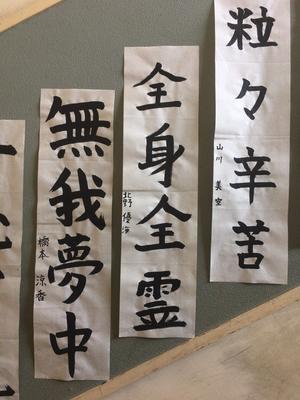 粒々辛苦
山川 美空
全身全霊
北野 優海
無我夢中
橋本 涼香